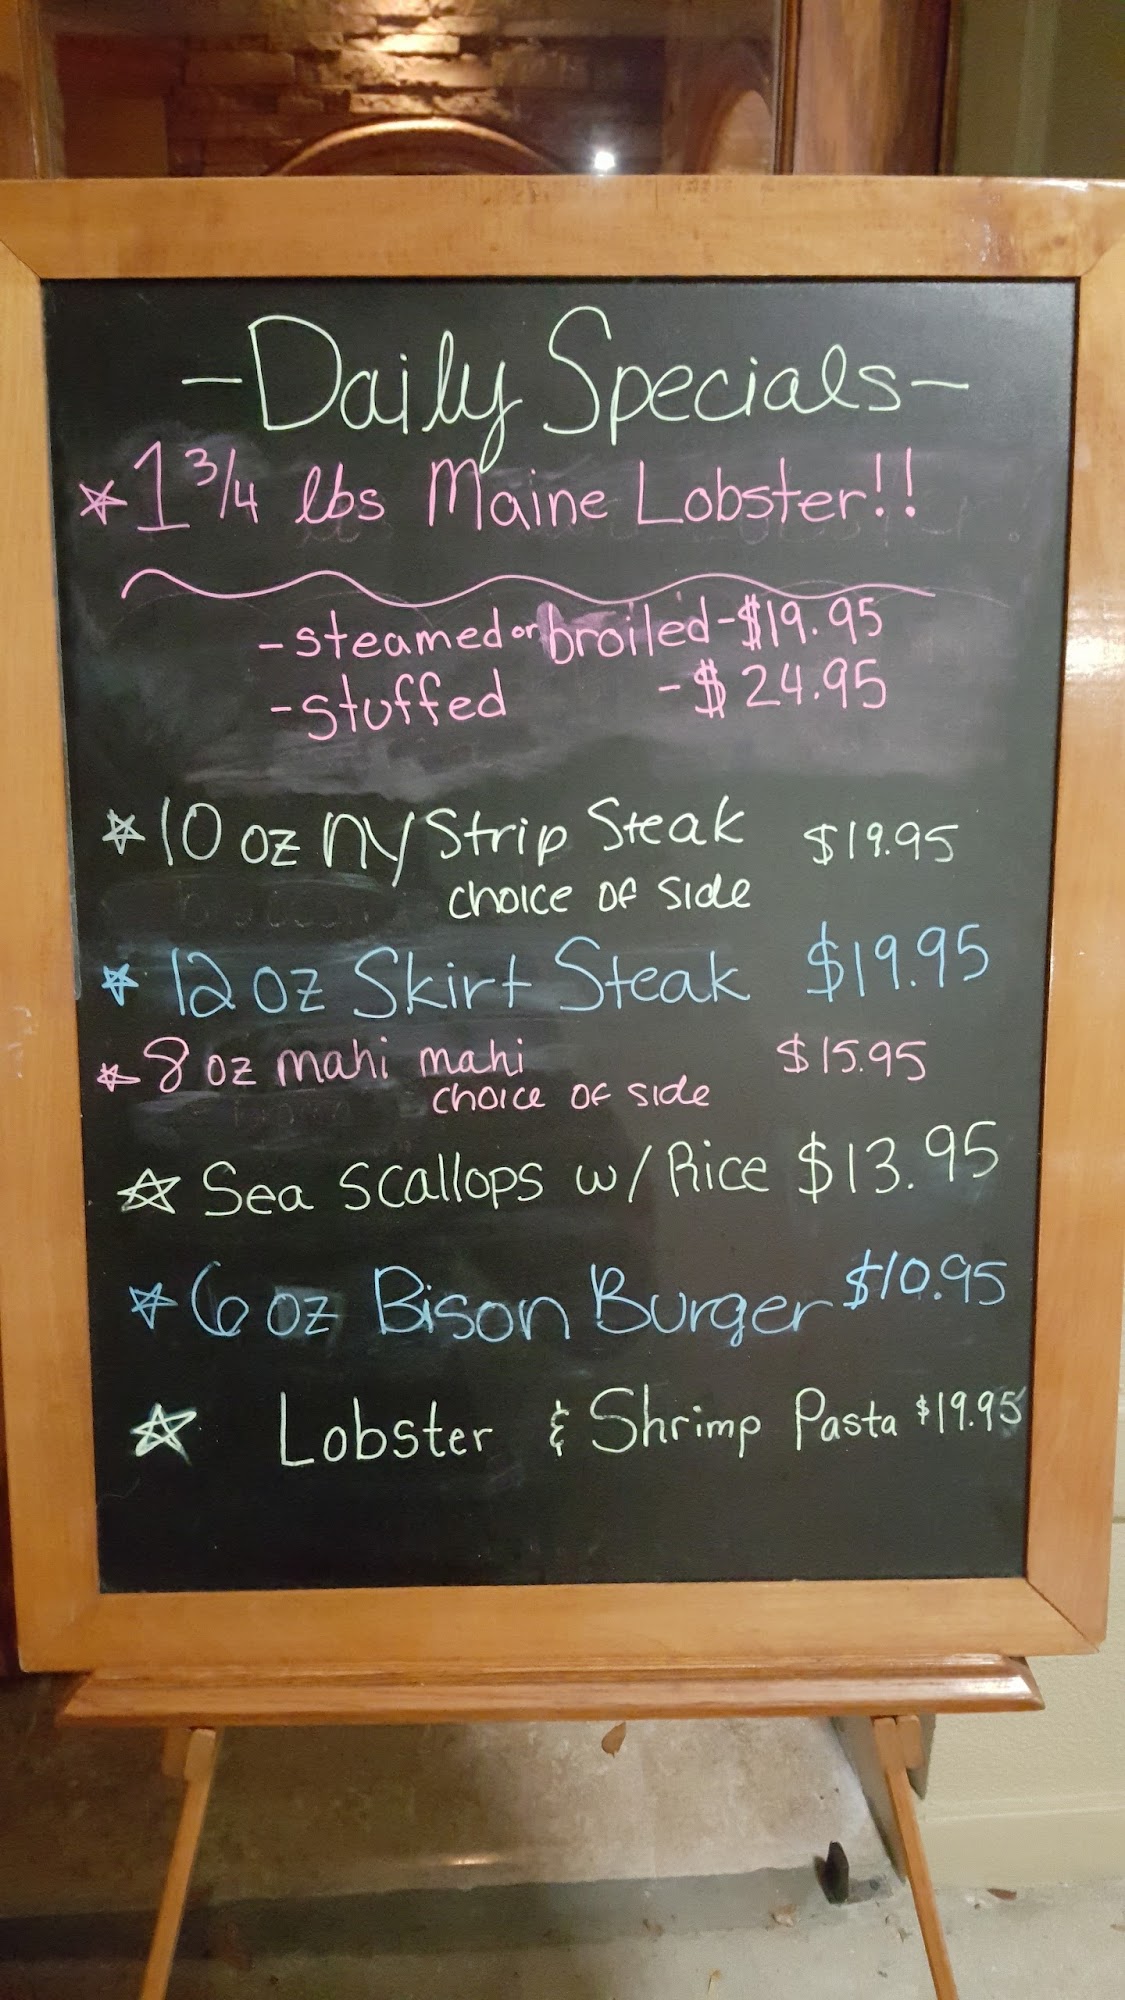 -Daily Specials-
1 3/4 lbs Maine Lobster!!
-steamed or broiled-$19.95
-stuffed -$24.95
10 oz NY Strip Steak $19.95
choice of side
12 oz Skirt Steak $19.95
8 oz mahi mahi $15.95
choice of side
Sea scallops w/ Rice $13.95
6 oz Bison Burger $10.95
Lobster & Shrimp Pasta $19.95